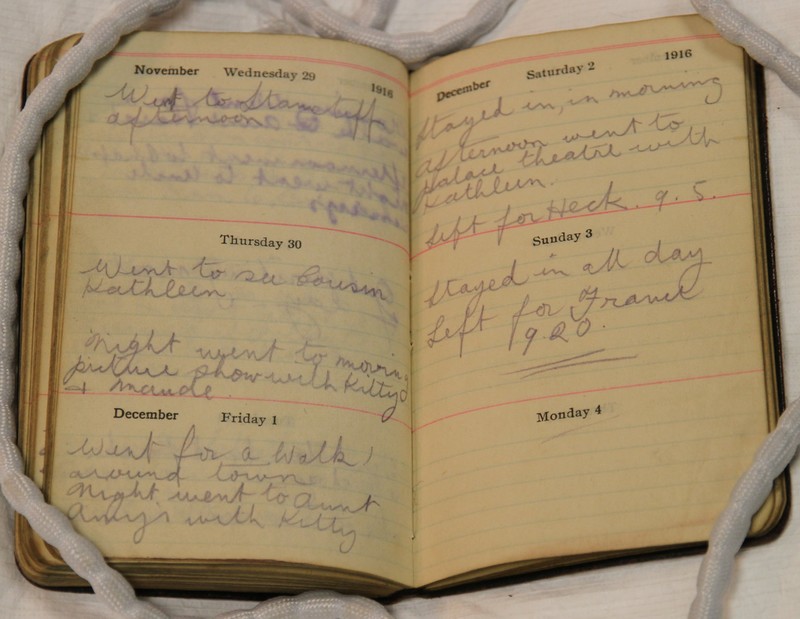 November Wednesday 29 1916
Went to
afternoon
Thursday 30
Went to see Cousin
Kathleen
Night went to moving
picture show with Kitty
& Maude.
December Friday 1
Went for a walk
around town
Night went to Aunt
Amy's with Kitty
December Saturday 2 1916
Stayed in, in morning
Afternoon went to
Palace theatre with
Kathleen.
Left for Heck. 9.5.
Sunday 3
Stayed in all day
Left for France
9.20.
Monday 4